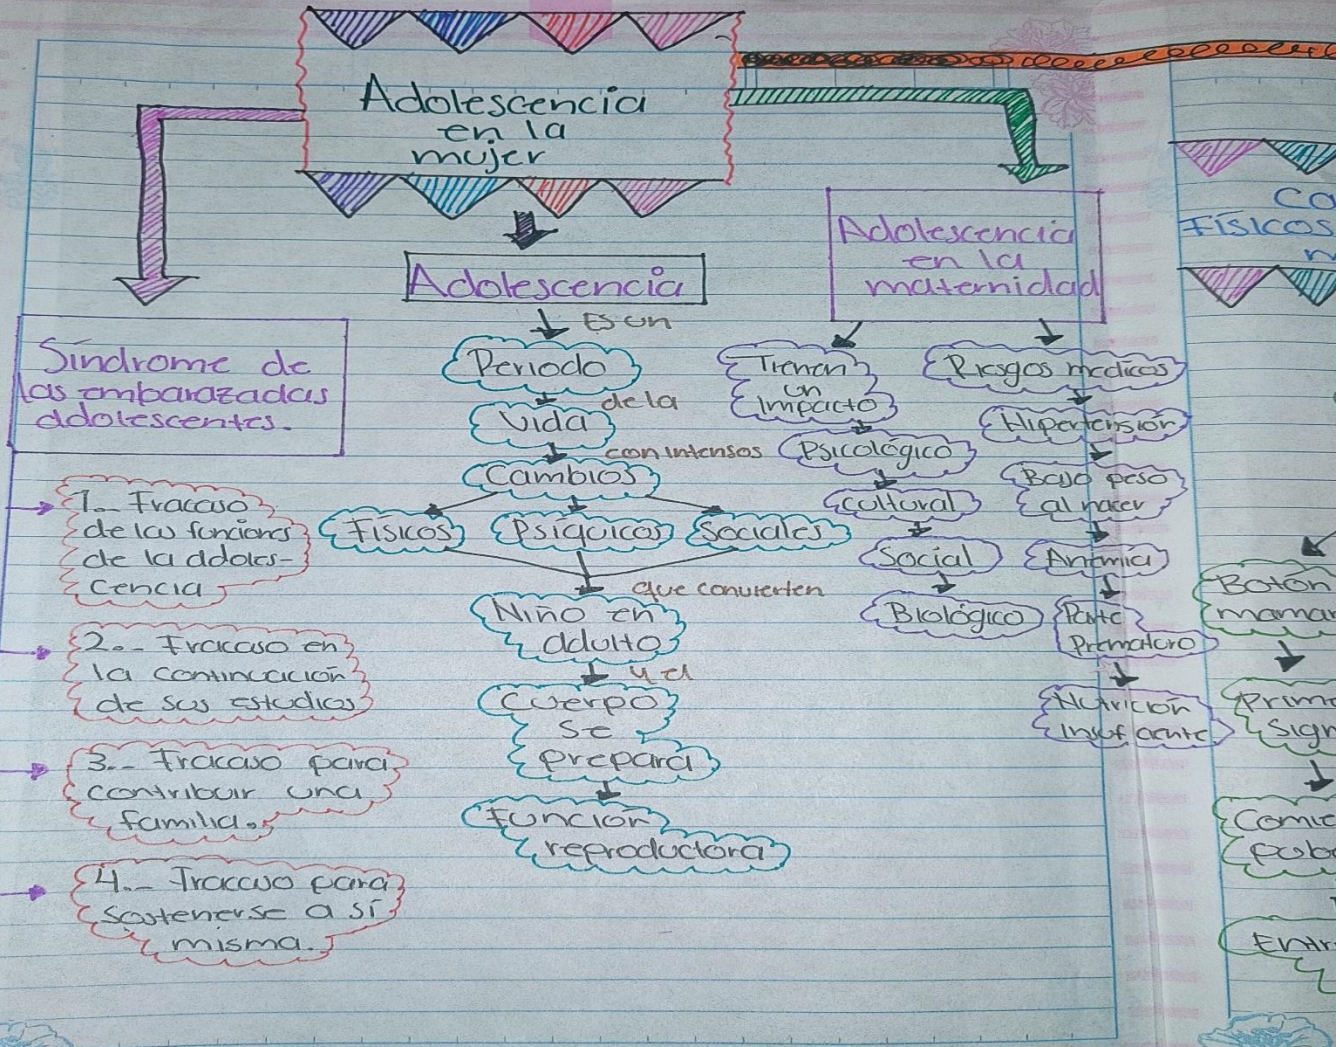 Adolescencia
en la
mujer
Síndrome de
las embarazadas
adolescentes.
1.- Fracaso
de las funciones
de la adoles-
cencia
2.- Fracaso en
la continuación
de sus estudios
3.- Fracaso para
contribuir una
familia.
4.- Fracaso para
sostenerse a sí
misma.
Adolescencia
Es un
Periodo
de la
Vida
con intensos
Cambios
Físicos Psíquicos Sociales
que convierten
Niño en
adulto
y el
Cuerpo
se
prepara
Función
reproductora
Adolescencia
en la
maternidad
Tienen
un
impacto
Psicológico
Cultural
Social
Biológico
Riesgos medicos
Hipertensión
Bajo peso
al nacer
Anemia
Parto
Prematuro
Nutrición
insuficiente
Ca
Físicos
n
Botón
mama
Prime
sign
Comie
pub
Entr